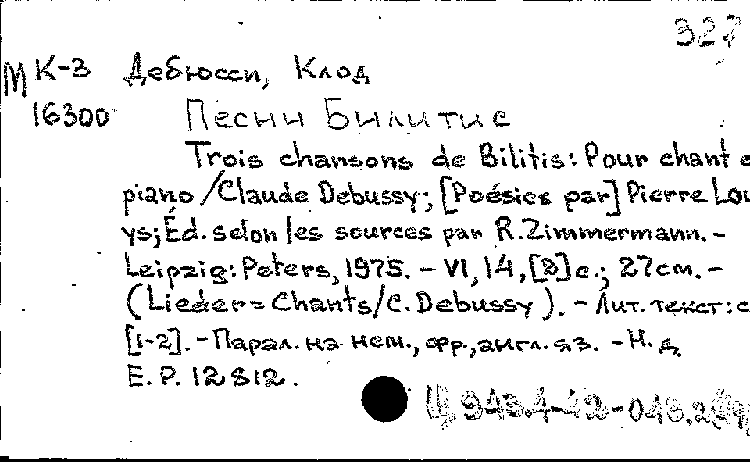 327
М К-3 Дебюсси, Клод
16300 Песни Билитис
Trois chansons de Bilitis: Pour chant e
piano / Claude Debussy; [Poésies par] Pierre Lou-
ys; Éd. selon les sources par R. Zimmermann. -
Leipzig: Peters, 1975. - VI, 14, [2] c.; 27 см. -
(Lieder = Chants / C. Debussy). - Лит. текст: с
[1-2]. - Парал. на нем., фр., англ. яз. - Н. д.
E. P. 12812.
Ц 943.4-42-048.2